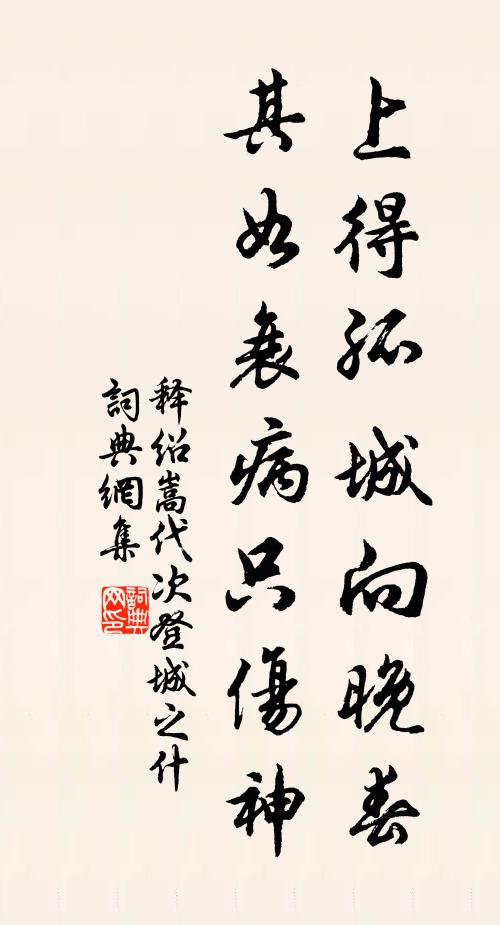 上得孤城向晚春
其如衰病只傷神
释紹嵩代次登城之什
詞典網集
詞典网印